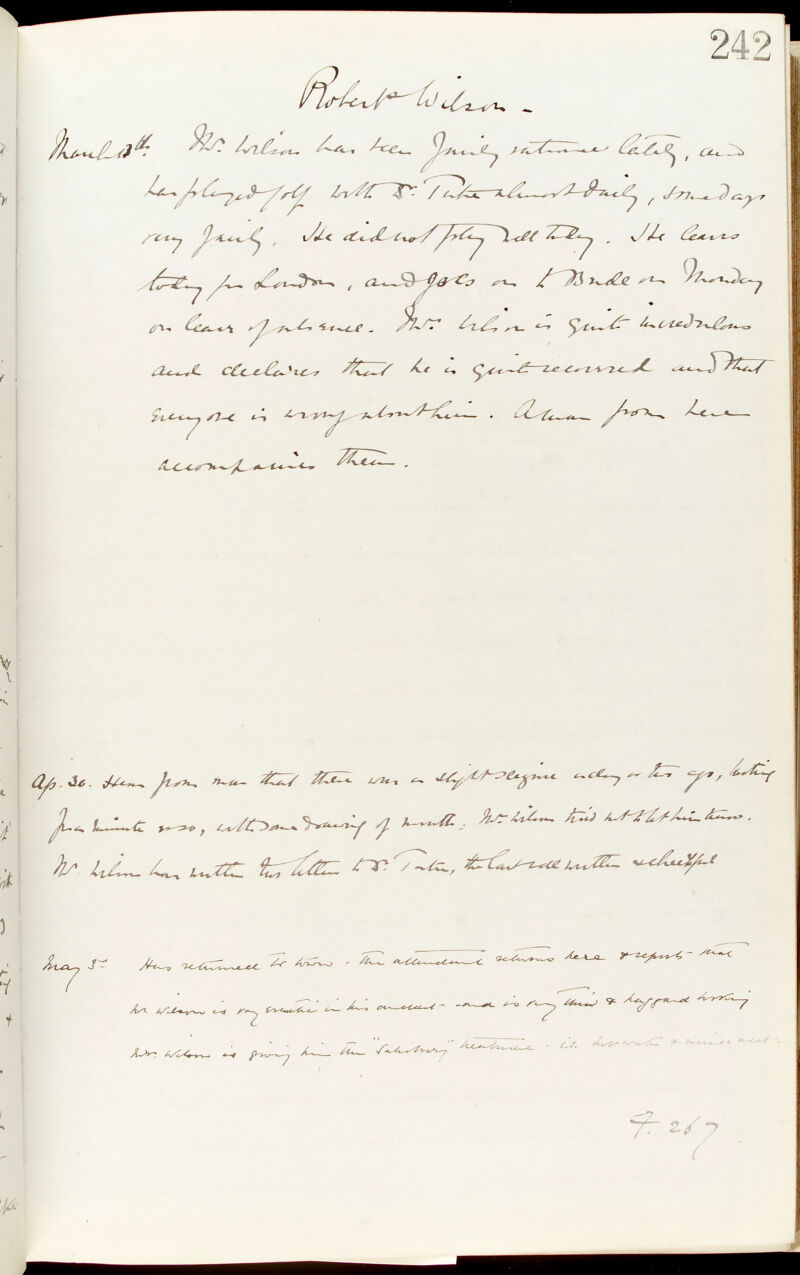 242
Robert Wilson -
March 18th. Mr. Wilson has been fairly rational lately, and
has played golf with Dr. Tuke almost daily, some days
very fairly. He did not play well today. He leaves
today for London, and goes on to Bude on Monday
on leave of absence. Mrs. Wilson is quite incredulous
and declares that he is quite recovered and that
everyone is wrong about him. A man from here
accompanies them.
Ap. 30. Hear from man that there was a slight seizure a day or two ago, lasting
for a minute or so, with some drawing of mouth. Mrs. Wilson tried not to let him know.
Mr. Wilson has written two letters to Dr. Tuke, the last well written & cheerful
May 3rd Has returned to town - the attendant returns here & reports that
Mr. Wilson is very erratic in his conduct - and is very thin & haggard looking
Mrs. Wilson is giving him the "Salisbury" treatment - i.e. hot water & minced meat.
F. 267